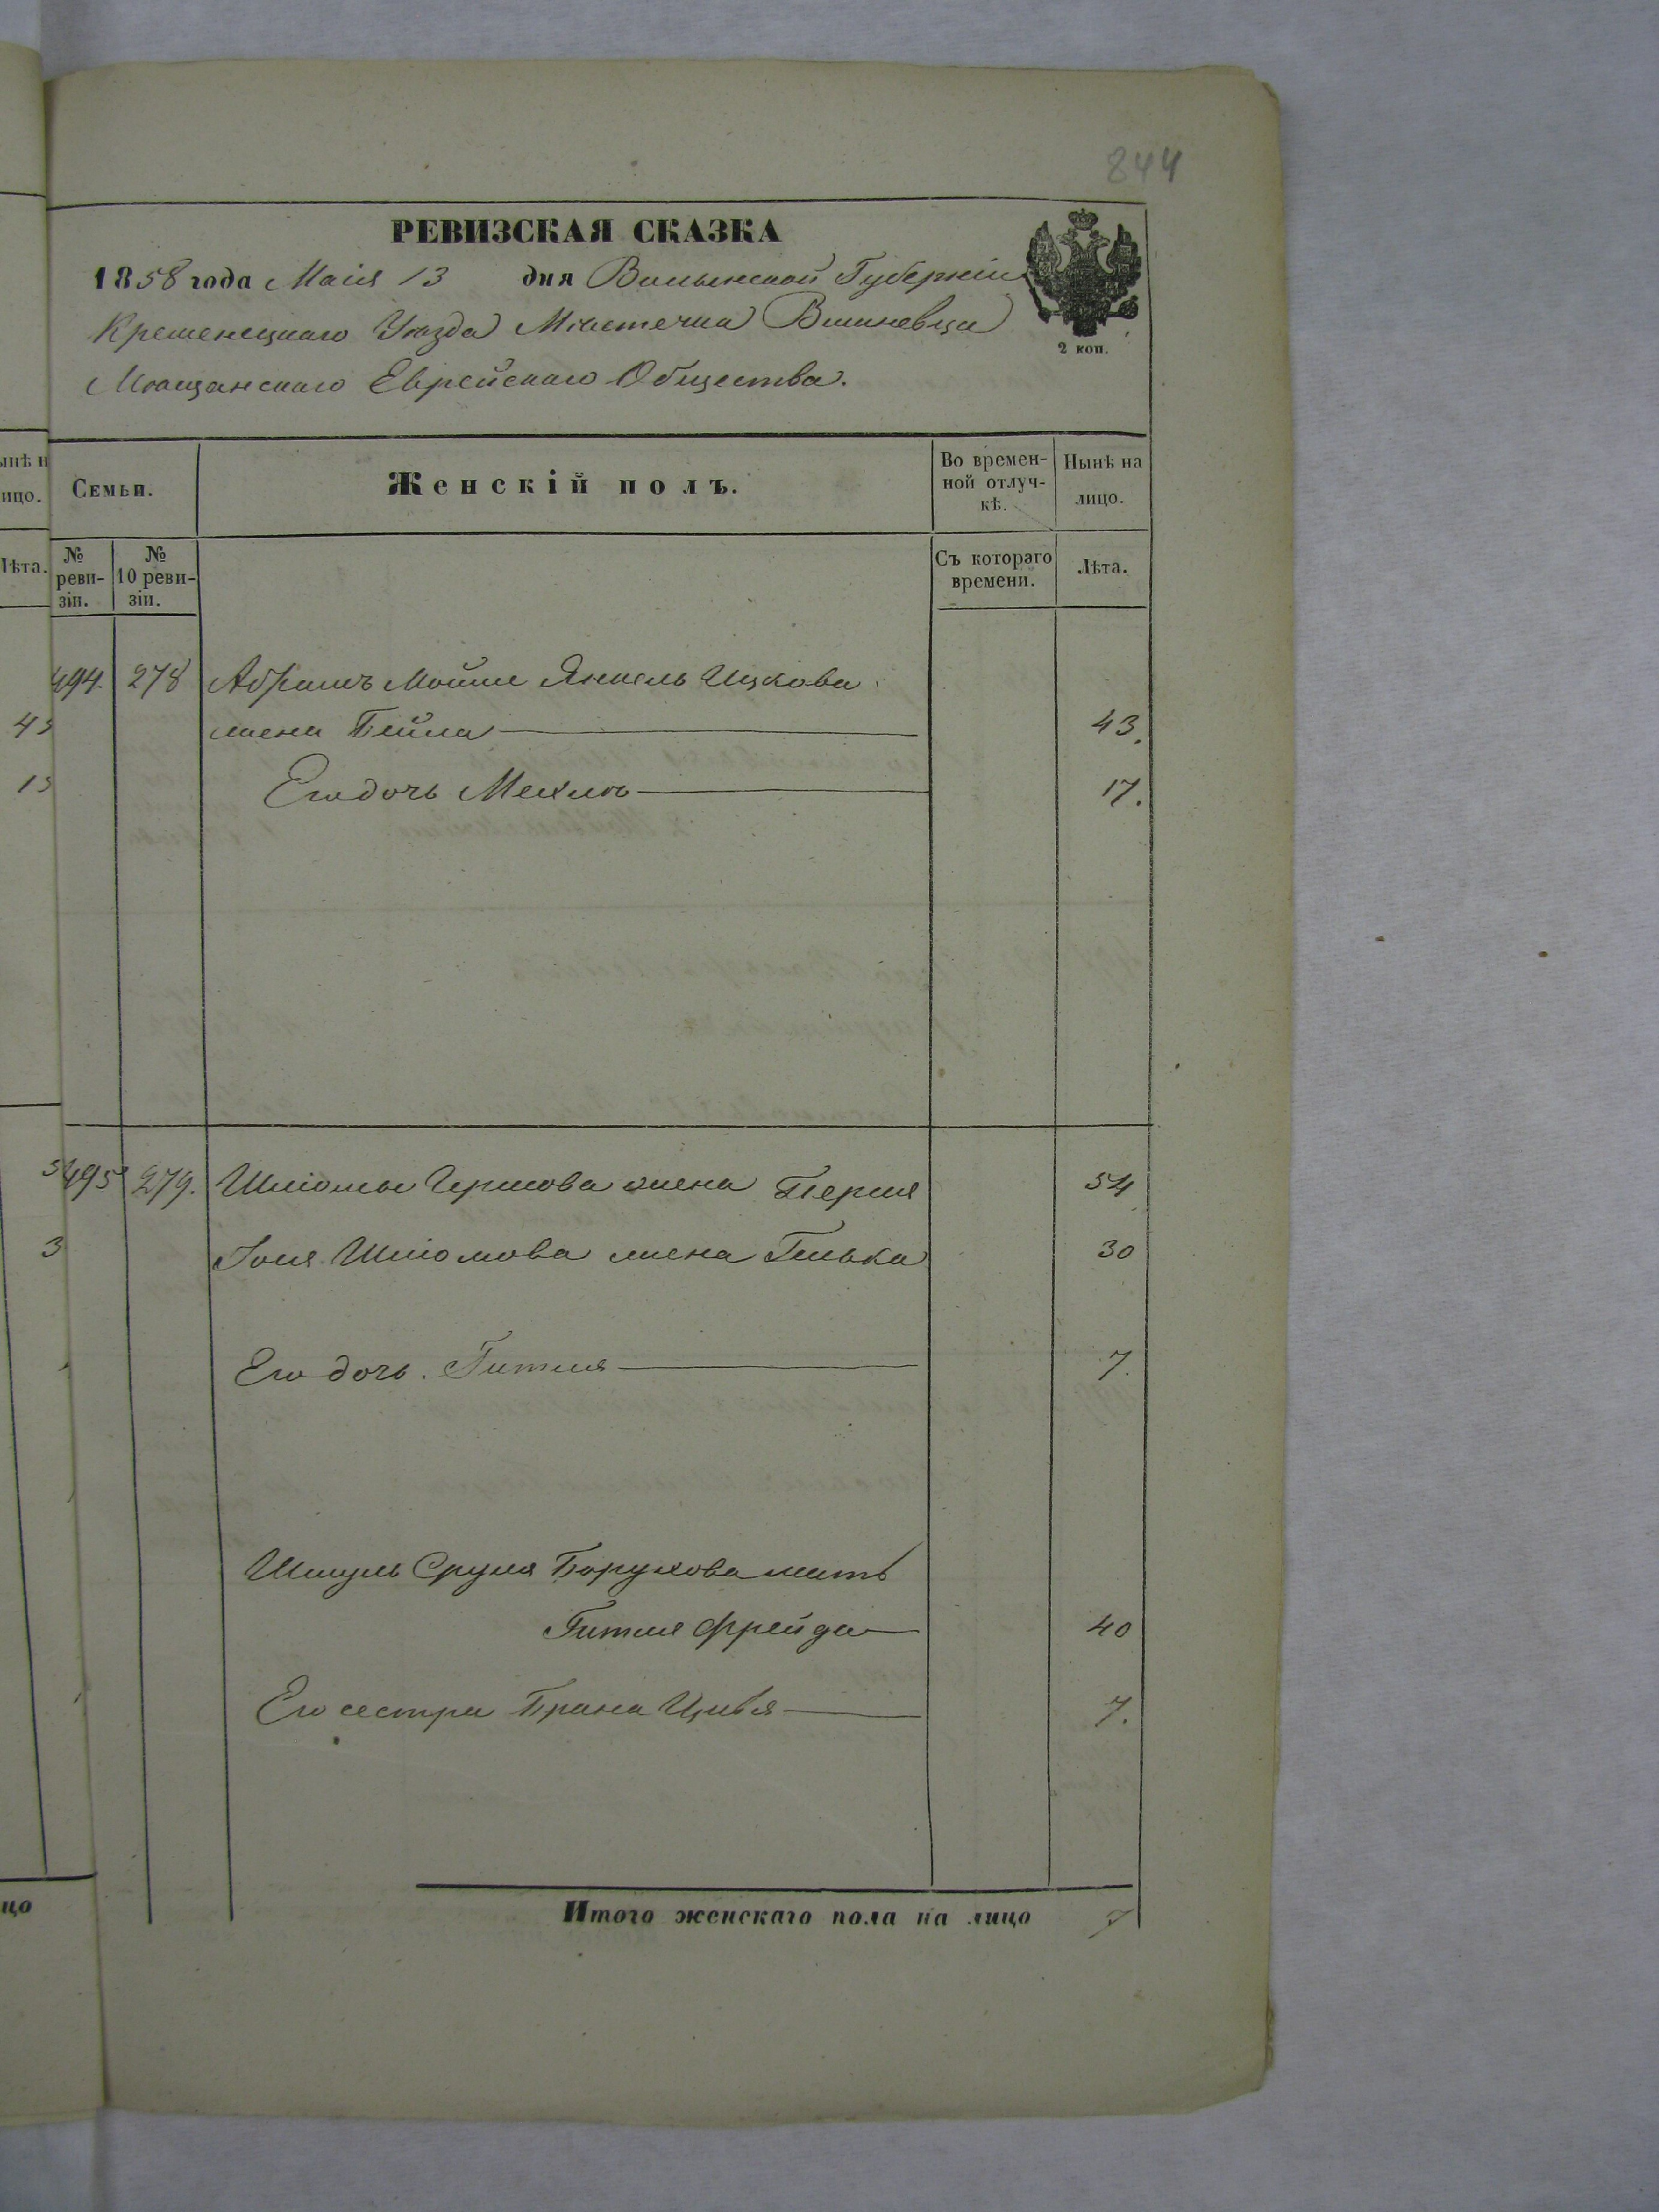 844
РЕВИЗСКАЯ СКАЗКА
1858 года Маія 13 дня Волынской Губерніи
Кременецкаго Уѣзда Мѣстечка Вишневца
Мѣщанскаго Еврейскаго Общества.
2 коп.
Семьи.
Женскій полъ.
Во времен-
ной отлуч-
кѣ.
Нынѣ на
лицо.
№
реви-
зіи.
№
10 реви-
зіи.
Съ котораго
времени.
Лѣта.
494. 278 Абрамъ Мойше Янкель Ицкова
жена Бейла 43.
Его дочь Мехля 17.
495 279. Шліомы Гершова жена Перля 54
Іоня Шліомова жена Гилька 30
Его дочь. Гитля 7.
Шмуль Сруля Борухова мать
Гитля Фрейда 40
Его сестра Брана Цивья 7.
Итого женскаго пола на лицо 7
ынѣ н
ицо.
Лѣта.
43
13
3
цо